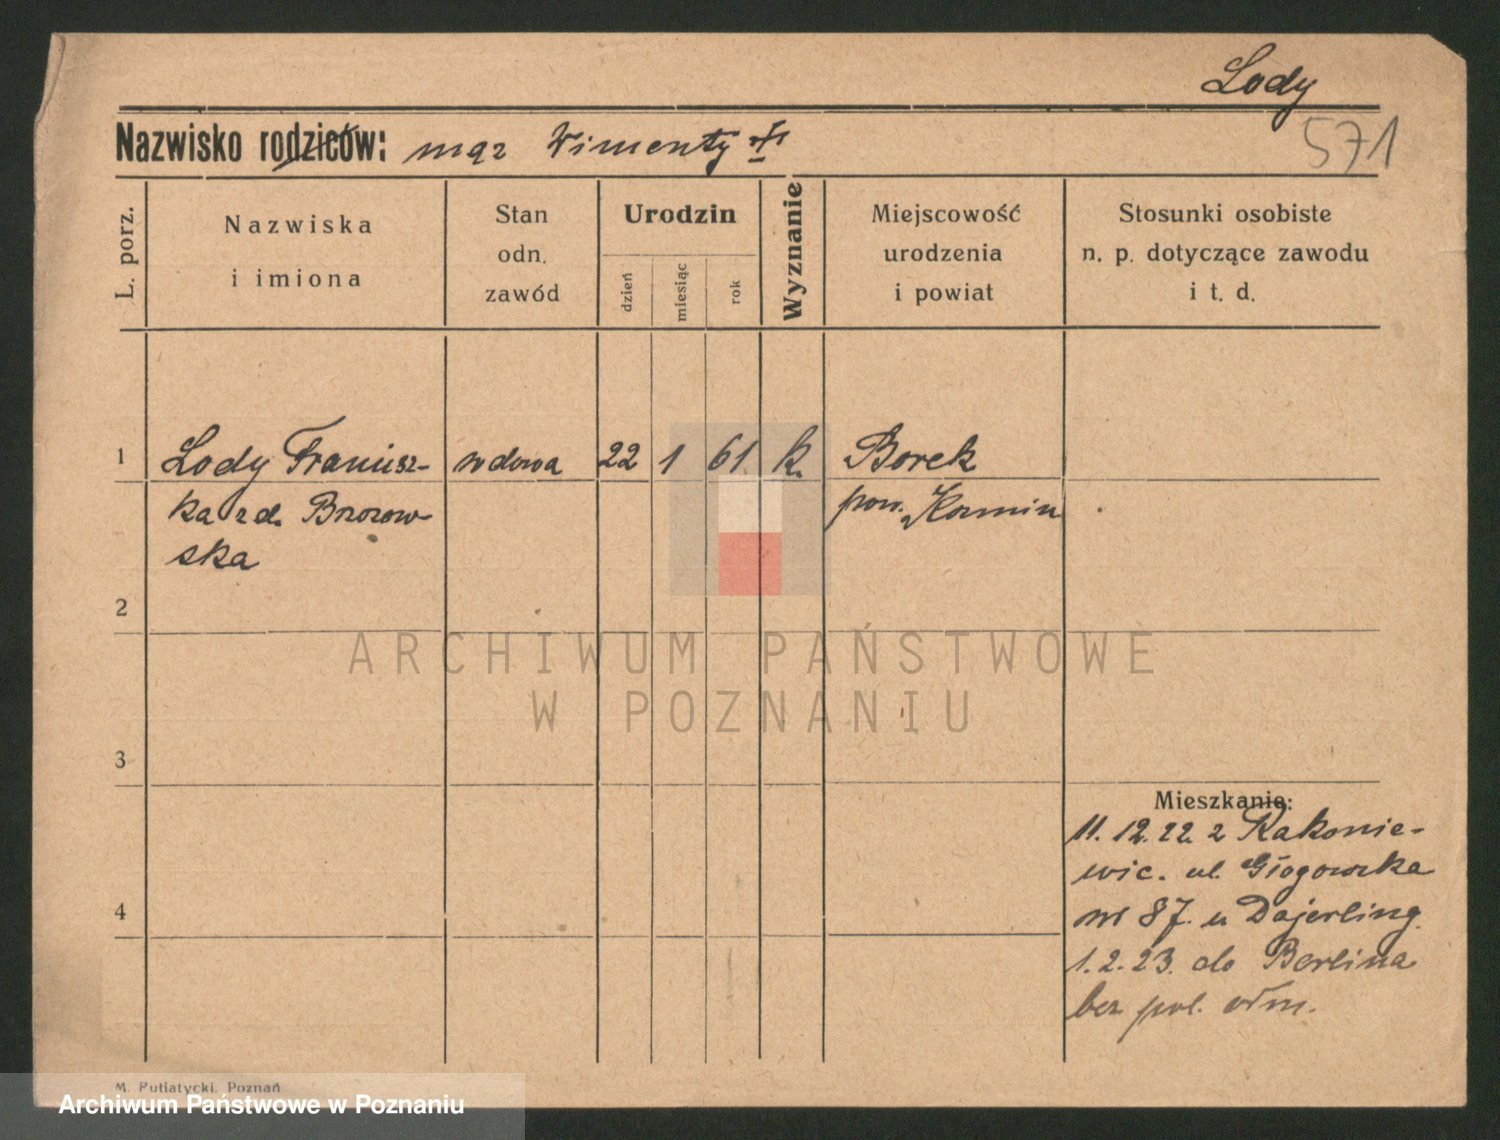 Lody
571
Nazwisko rodziców: mąż Wincenty
L. porz.
Nazwiska
i imiona
Stan
odn.
zawód
Urodzin
dzień
miesiąc
rok
Wyznanie
Miejscowość
urodzenia
i powiat
Stosunki osobiste
n. p. dotyczące zawodu
i t. d.
1
Lody Francisz-
ka zd. Brzozow-
ska
wdowa
22
1
61
k.
Borek
pow. Kozmin
2
3
4
Mieszkanie:
11. 12. 22 z Rakonie-
wic. ul. Głogowska
nr 87. u Dajerling.
1. 2. 23. do Berlina
bez pol. odm.
M. Putiatycki, Poznań
ARCHIWUM PAŃSTWOWE
W POZNANIU
Archiwum Państwowe w Poznaniu